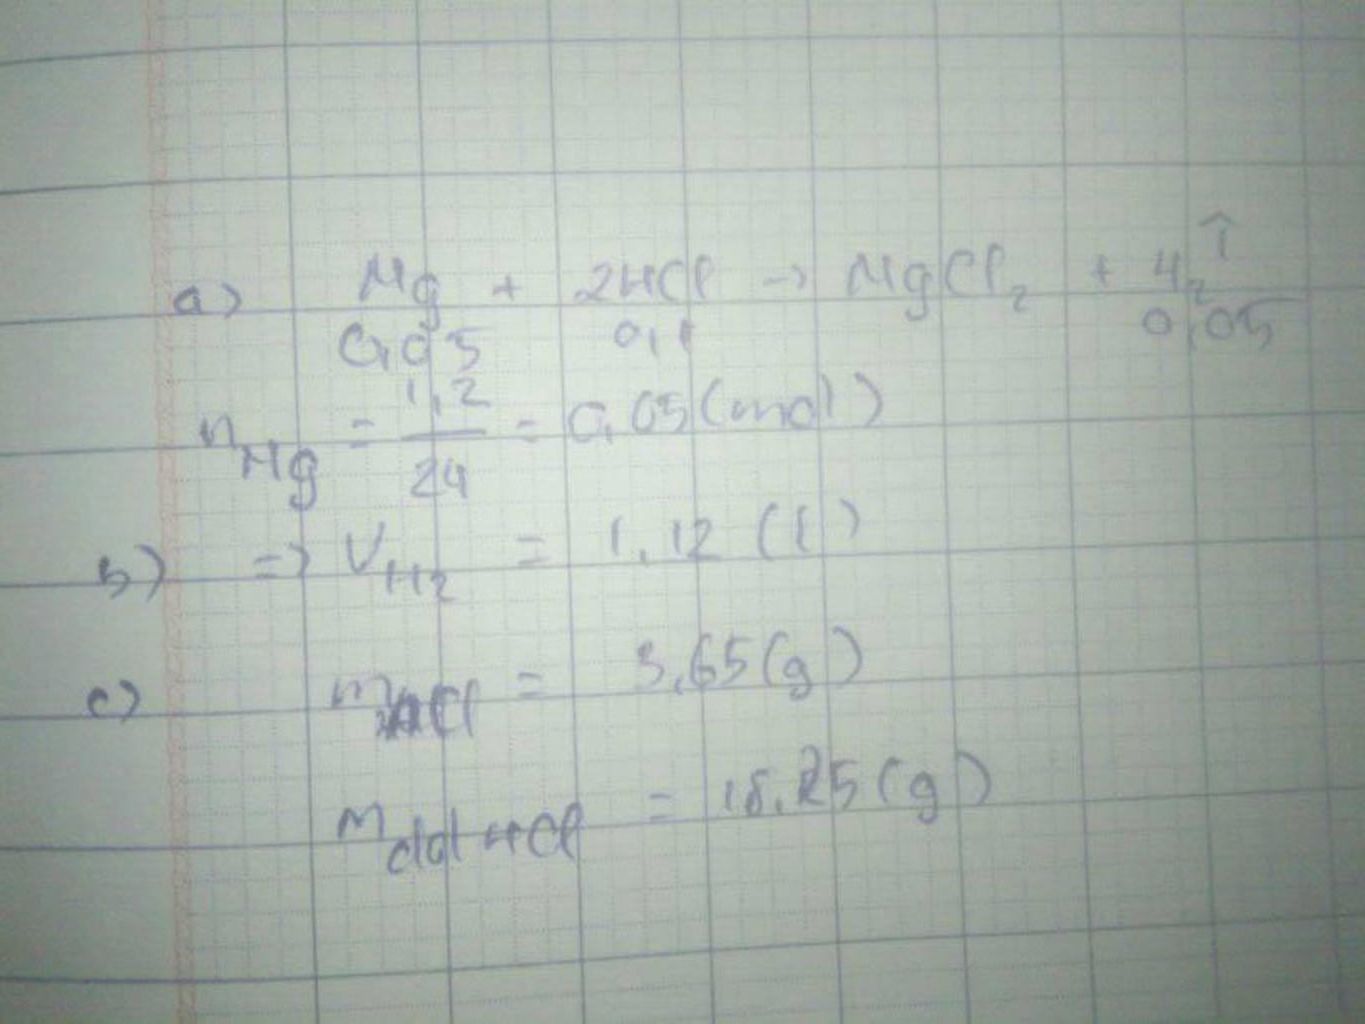 a) Mg + 2HCl → MgCl₂ + H₂↑
0,05 0,1 0,05
n_Mg = 1,2/24 = 0,05 (mol)
b) => V_H₂ = 1,12 (l)
c) m_HCl = 3,65 (g)
m_dd HCl = 18,25 (g)